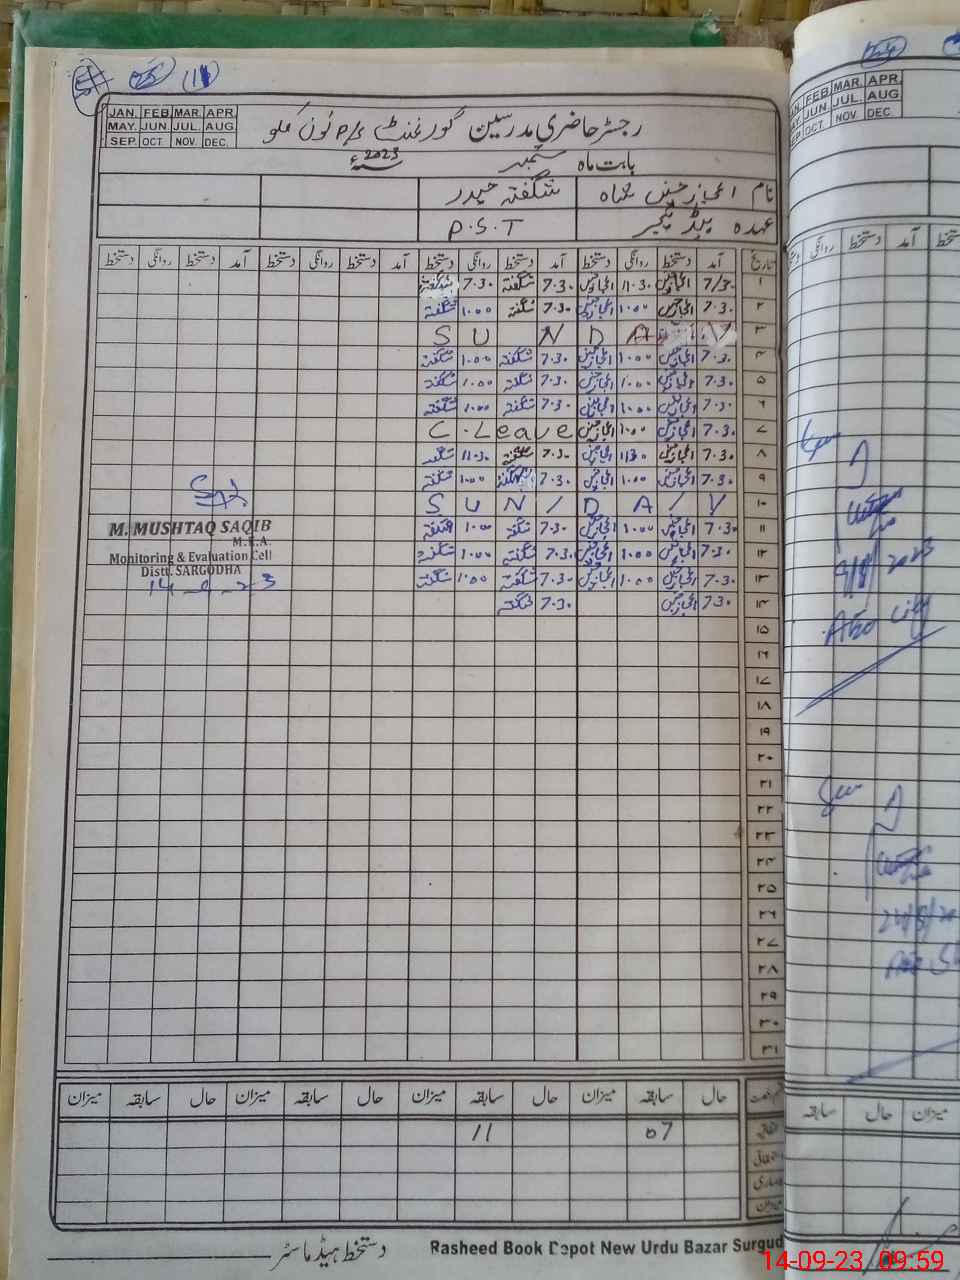 JAN. FEB. MAR. APR.
MAY. JUN. JUL. AUG.
SEP. OCT. NOV. DEC.
رجسٹر حاضری مدرسین گورنمنٹ P/S نون کلو
بابت ماہ ستمبر 2023ء
نام اعجاز حسین شاہ شگفتہ حیدر
عہدہ ہیڈ ٹیچر P.S.T
تاریخ آمد دستخط روانگی دستخط آمد دستخط روانگی دستخط آمد دستخط روانگی دستخط آمد دستخط روانگی دستخط
۱ 7/30 11.30 7.30 شگفتہ 7.30
۲ 7.30 1.00 7.30 شگفتہ 1.00 شگفتہ
۳ SUNDAY
۴ 7.30 1.00 7.30 شگفتہ 1.00 شگفتہ
۵ 7.30 1.00 7.30 شگفتہ 1.00 شگفتہ
۶ 7.30 1.00 7.30 شگفتہ 1.00 شگفتہ
۷ 7.30 1.00 C.Leave
۸ 7.30 1130 7.30 شگفتہ 11.30 شگفتہ
۹ 7.30 1.00 7.30 1.00 شگفتہ
۱۰ SUN/DA/Y
۱۱ 7.30 1.00 7.30 شگفتہ 1.00 شگفتہ
۱۲ 7.30 1.00 7.30 شگفتہ 1.00 شگفتہ
۱۳ 7.30 1.00 7.30 شگفتہ 1.00 شگفتہ
۱۴ 7.30 7.30 شگفتہ
M. MUSHTAQ SAQIB
M.E.A.
Monitoring & Evaluation Cell
Distt. SARGODHA
14-9-23
۱۵
۱۶
۱۷
۱۸
۱۹
۲۰
۲۱
۲۲
۲۳
۲۴
۲۵
۲۶
۲۷
۲۸
۲۹
۳۰
۳۱
حال سابقہ میزان حال سابقہ میزان حال سابقہ میزان حال سابقہ میزان
اتفاقیہ 07 11
دستخط ہیڈ ماسٹر
Rasheed Book Depot New Urdu Bazar
14-09-23 09:59
FEB. MAR. APR.
JUN. JUL. AUG.
DEC.
آمد دستخط روانگی
9/8/2023
میزان حال سابقہ